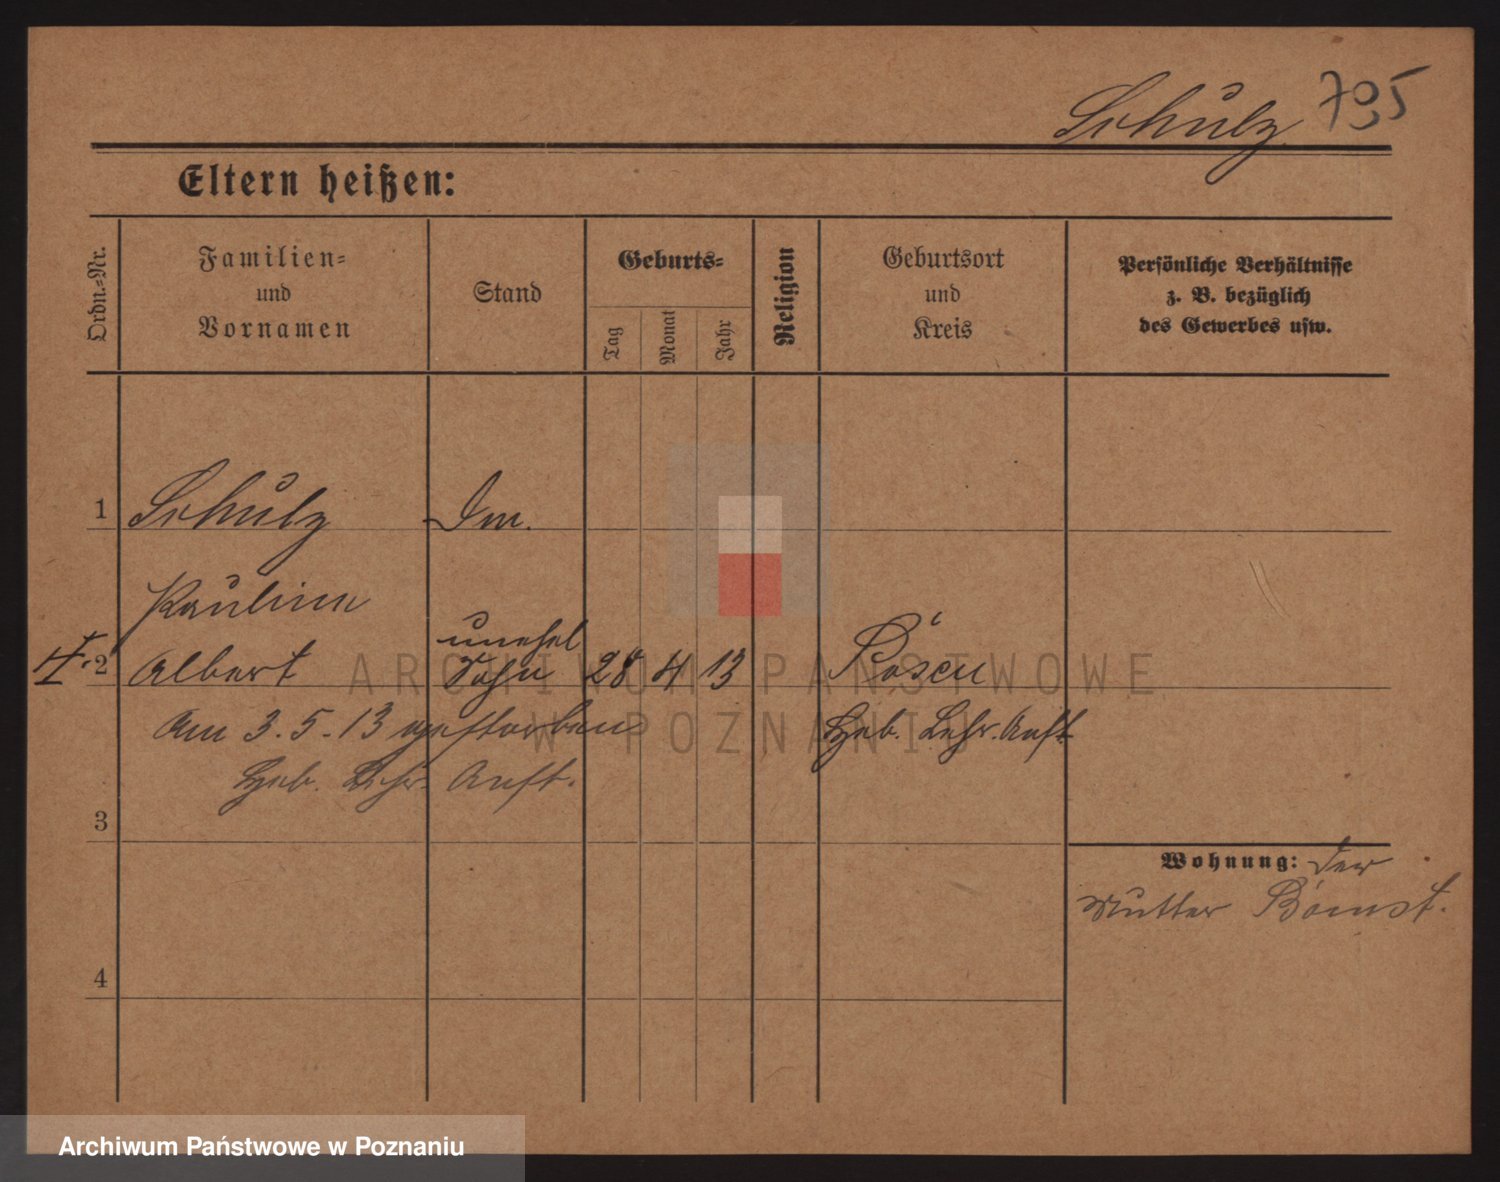 Schulz 795
Eltern heißen:
Ordn.-Nr.
Familien-
und
Vornamen
Stand
Geburts-
Tag
Monat
Jahr
Religion
Geburtsort
und
Kreis
Persönliche Verhältnisse
z. B. bezüglich
des Gewerbes usw.
1 Schulz
Pauline
unehel
2 Albert Sohn 28 4 13 Posen
Am 3.5.13 gestorben Heb. Lehr. Anst.
Heb. Lehr. Anst.
3
Wohnung: der
Mutter Bomst.
4
ARCHIWUM PAŃSTWOWE
W POZNANIU
Archiwum Państwowe w Poznaniu